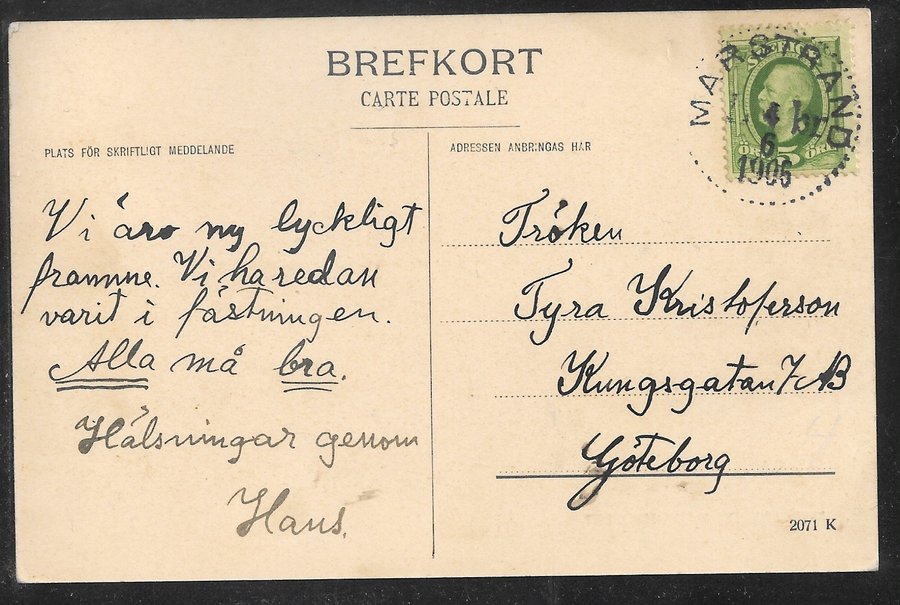 BREFKORT
CARTE POSTALE
PLATS FÖR SKRIFTLIGT MEDDELANDE
ADRESSEN ANBRINGAS HÄR
MARSTRAND
4 br
6
1905
SVERIGE
5
ÖRE
Vi äro ny lyckligt
framme. Vi ha redan
varit i fästningen.
Alla må bra.
Hälsningar genom
Hans.
Fröken
Tyra Kristoferson
Kungsgatan 7 AB
Göteborg
2071 K